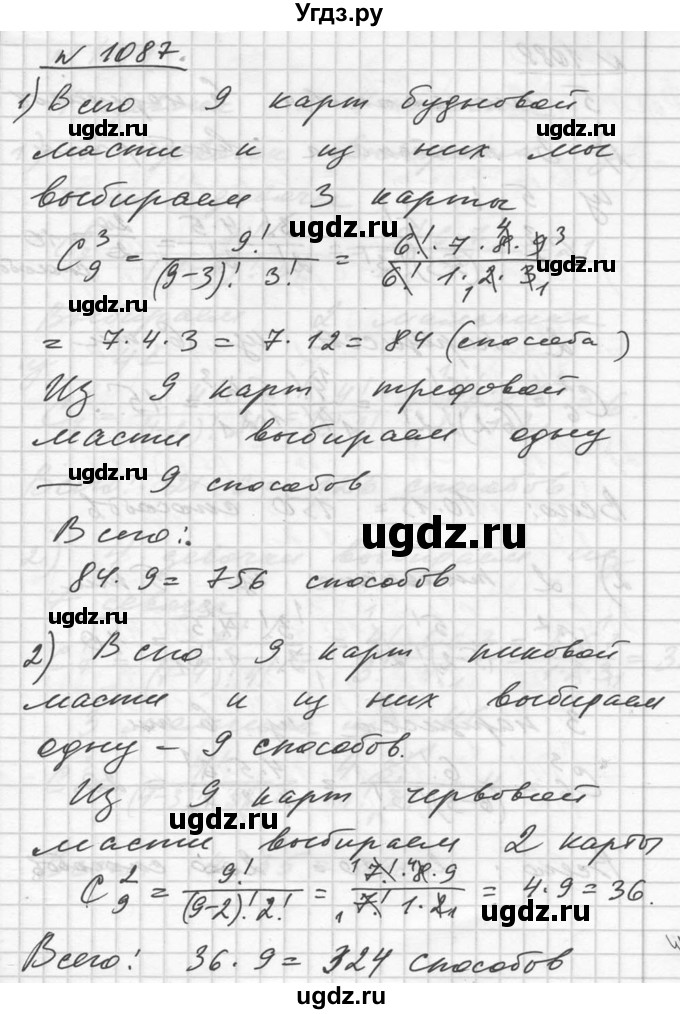 Угдз.ру
№ 1087.
1) Всего 9 карт бубновой
ugdz.ru ugdz.ru
масти и из них мы
выбираем 3 карты
ugdz.ru
C₉³ = 9! / (9-3)! 3! = 6! · 7 · 8 · 9 / 6! · 1 · 2 · 3 =
= 7·4·3 = 7·12 = 84 (способа)
ugdz.ru
Из 9 карт трефовой
масти выбираем одну
ugdz.ru
— 9 способов
ugdz.ru
Всего:
84·9 = 756 способов
ugdz.ru
2) Всего 9 карт пиковой
масти и из них выбираем
ugdz.ru
одну – 9 способов.
Из 9 карт червовой
ugdz.ru
масти выбираем 2 карты
C₉² = 9! / (9-2)! 2! = 7! · 8 · 9 / 7! · 1 · 2 = 4·9 = 36.
ugdz.ru
Всего: 36·9 = 324 способов
ugdz.ru